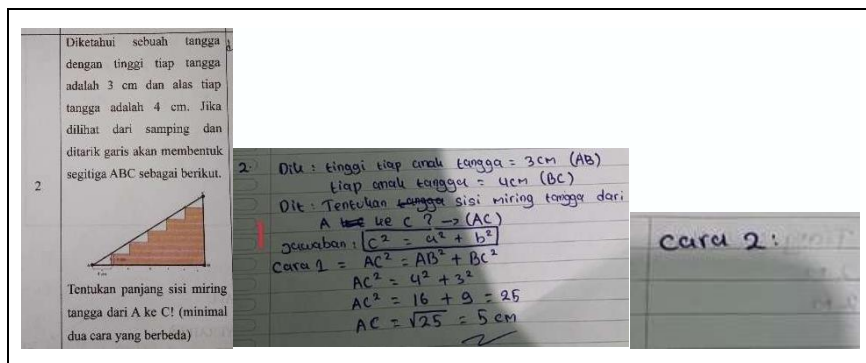 2
Diketahui sebuah tangga
dengan tinggi tiap tangga
adalah 3 cm dan alas tiap
tangga adalah 4 cm. Jika
dilihat dari samping dan
ditarik garis akan membentuk
segitiga ABC sebagai berikut.
Tentukan panjang sisi miring
tangga dari A ke C! (minimal
dua cara yang berbeda)
2. Dik : tinggi tiap anak tangga = 3cm (AB)
tiap anak tangga = 4cm (BC)
Dit : Tentukan tangga sisi miring tangga dari
A ke C ? → (AC)
Jawaban : c² = a² + b²
Cara 1 = AC² = AB² + BC²
AC² = 4² + 3²
AC² = 16 + 9 = 25
AC = √25 = 5 cm
Cara 2 :